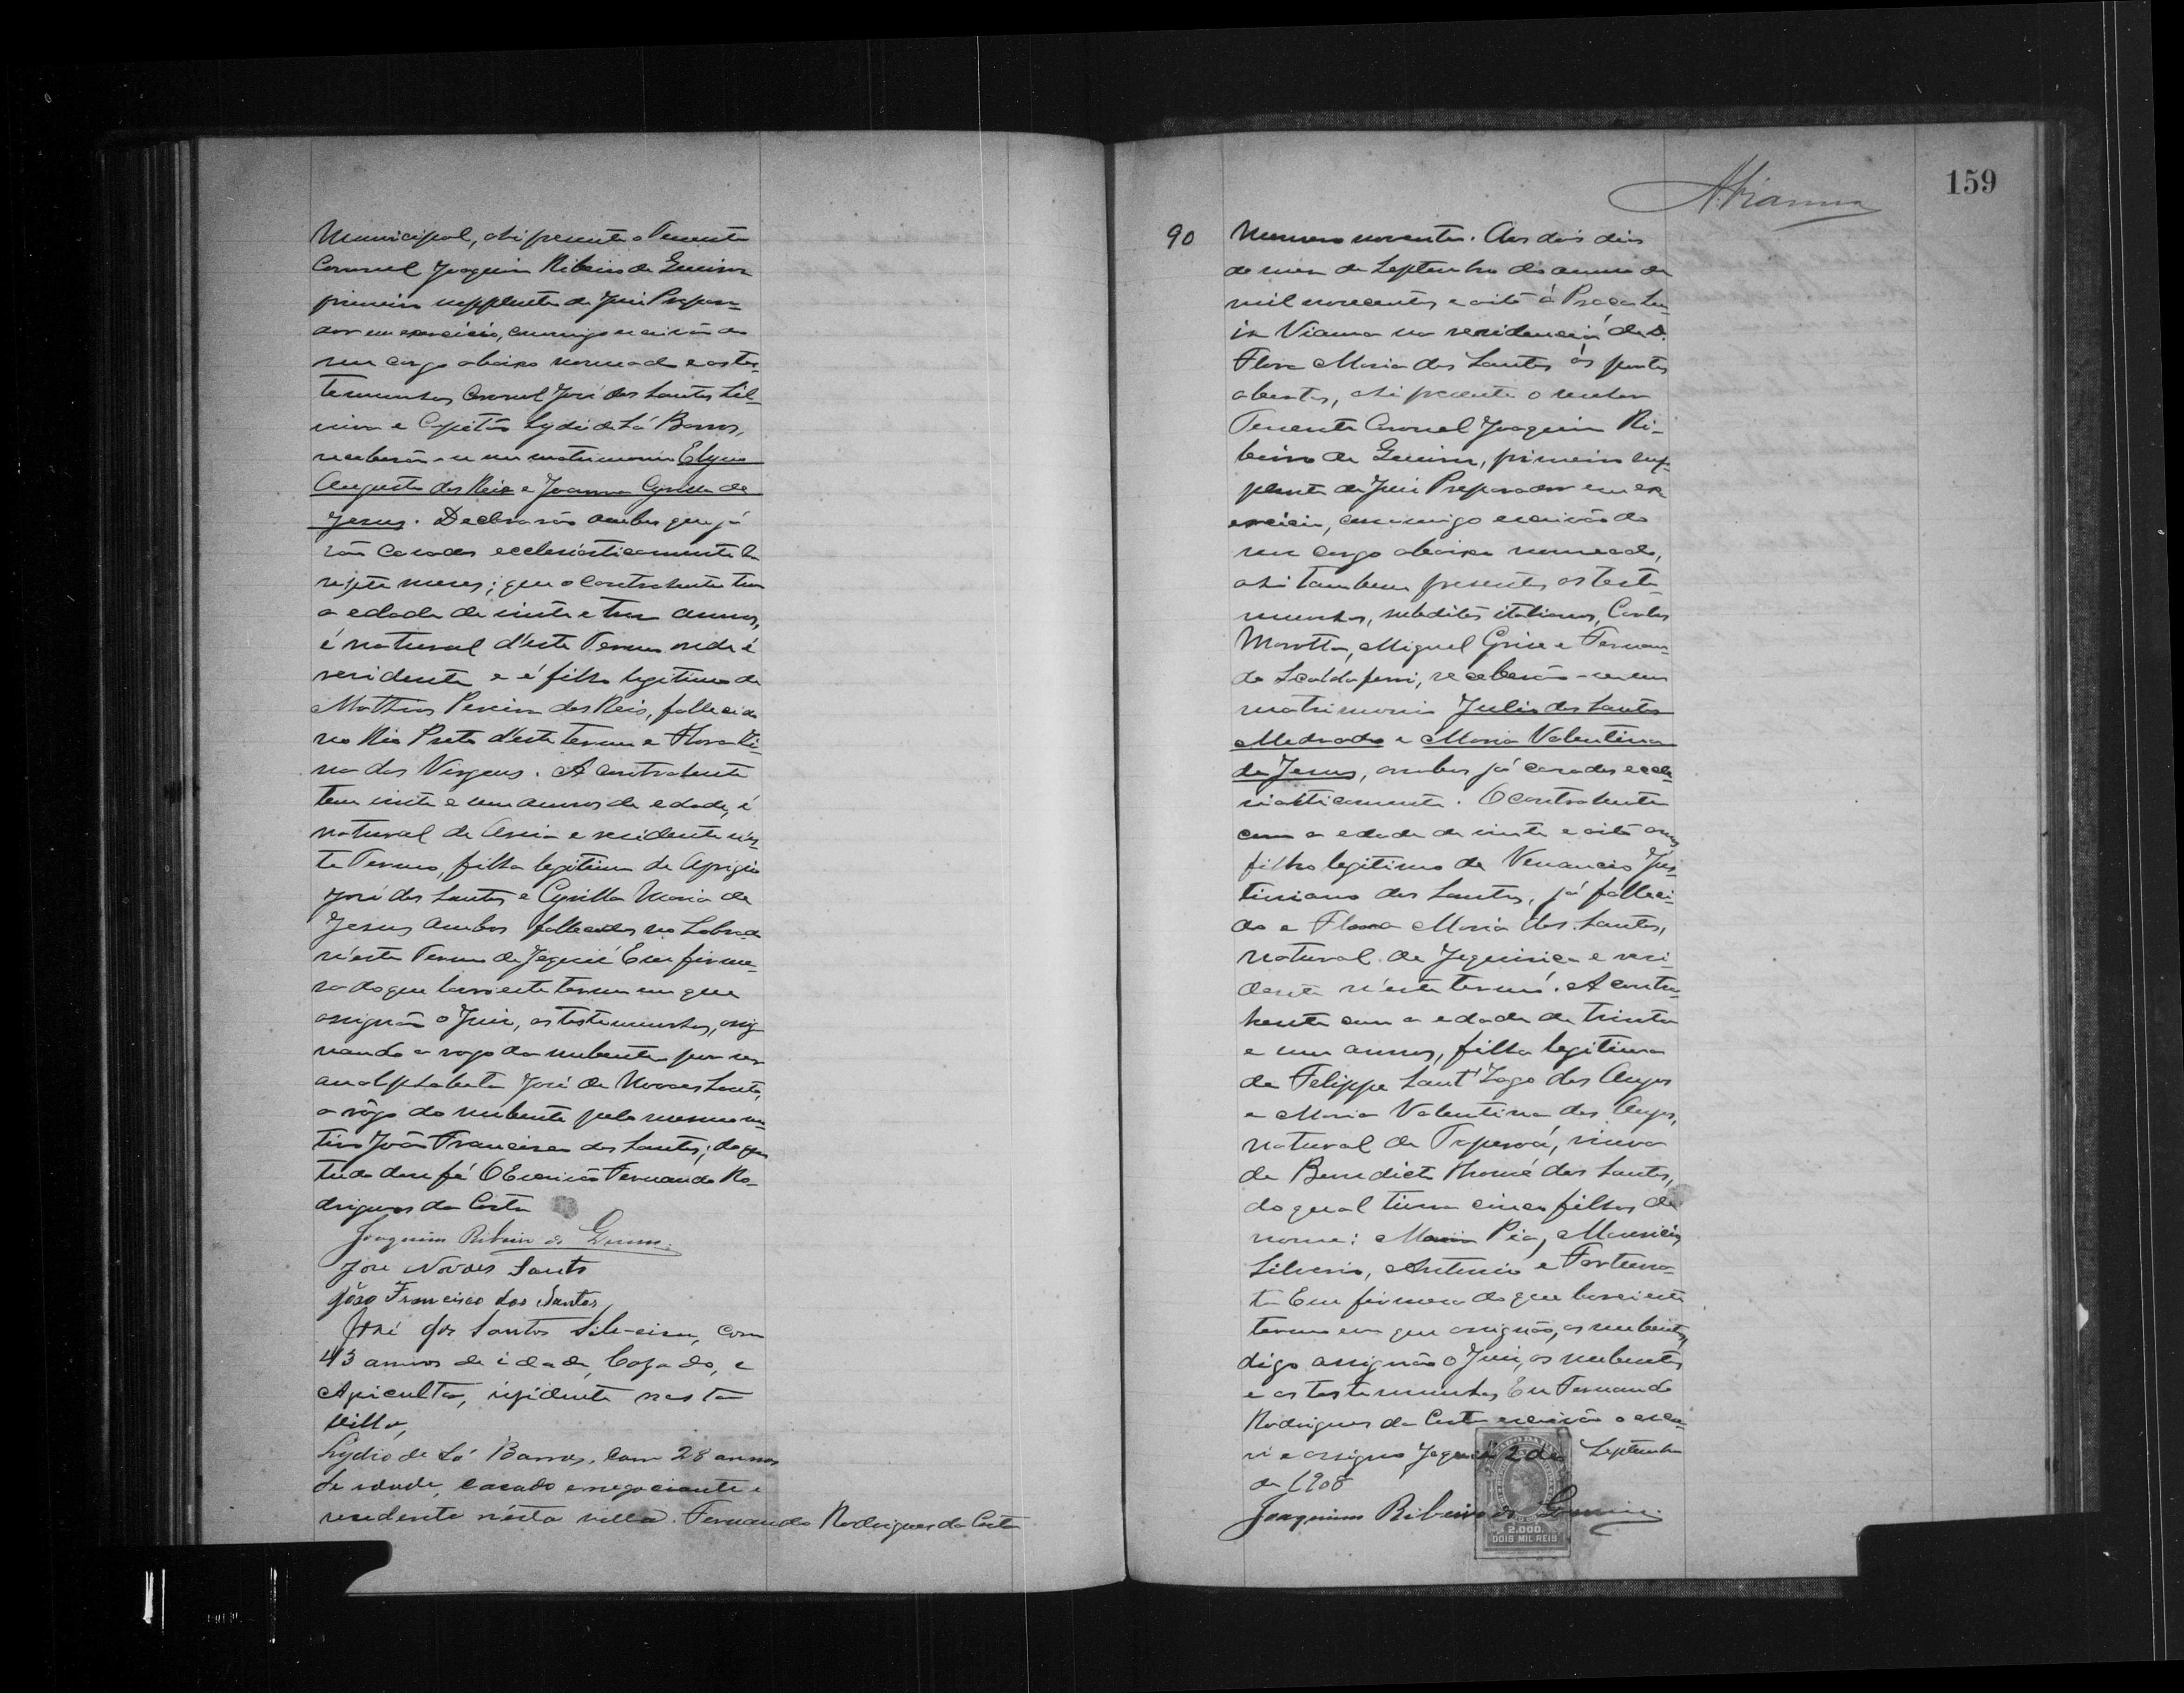 Municipal, ahi presente o Tenente
Coronel Joaquim Ribeiro de
primeiro supplente de Juiz Prepara-
dor em exercicio, commigo escrivão de
seu cargo abaixo nomeado e as tes-
temunhas Coronel José dos Santos Sil-
veira e Capitão Lydio de Sá Barros,
receberão-se em matrimonio
Augusto dos Reis e Joanna Cyrilla de
Jesus. Declararão ambos que já
são casados ecclesiasticamente ha
sete meses; que o contrahente tem
a edade de vinte e tres annos,
é natural d'este Termo onde é
residente e é filho legitimo de
Mathias Pereira dos Reis, fallecido
no Rio Preto d'este termo e Florenti-
na das Virgens. A contrahente
tem vinte e um annos de edade, é
natural de Areia e residente n'es-
te Termo, filha legitima de Aprigio
José dos Santos e Cyrilla Maria de
Jesus ambos fallecidos no
n'este Termo de Jequié Em firme-
sa do que lavro este termo em que
assignão o Juiz, as testemunhas, assig-
nando a rogo da nubente por ser
analphabeta José de Novaes Santos,
a rôgo do nubente pelo mesmo mo-
tivo João Francisco dos Santos; do que
tudo dou fé O Escrivão Fernando Ro-
drigues da Costa
Joaquim Ribeiro de
José Novaes Santos
João Francisco dos Santos
José dos Santos Silveira, com
43 annos de idade, Casado, e
Agricultor, residente nesta
Villa,
Lydio de Sá Barros, com 28 annos
de idade, casado e negociante e
residente nésta villa. Fernando Rodrigues da Costa
159
AVianna
90 Numero noventa. Aos dois dias
do mez de Septembro do anno de
mil novecentos e oito á Praça Lu-
iz Vianna na residencia de D.
Flora Maria dos Santos ás portas
abertas, ahi presente o senhor
Tenente Coronel Joaquim Ri-
beiro de primeiro sup-
plente de Juiz Preparador em ex
ercicio, commigo escrivão do
seu cargo abaixo nomeado,
ahi tambem presentes as teste-
munhas, subditos italianos, Carlos
Marotta, Miguel Grice e Fernan-
do Scaldaferri, receberão-se em
matrimonio Julio dos Santos
Medrado e Maria Valentina
de Jesus, ambos já casados eccle-
siasticamente. O contrahente
com a edade de vinte e oito annos
filho legitimo de Venancio Jus-
tiniano dos Santos, já falleci-
do e Flora Maria dos Santos,
natural de Jequiriçá e resi-
dente n'este termo. A contra-
hente com a edade de trinta
e um annos, filha legitima
de Felippe Sant'Iago dos Anjos
e Maria Valentina dos Anjos,
natural de Taperoá, viuva
de Benedicto Thomé dos Santos,
do qual tivera cinco filhos de
nome: Maria Pia, Mauricio,
Silverio, Antonio e Fortuna-
ta Em firmesa do que lavrei este
termo em que assignão, os nubentes,
digo assignão o Juiz, os nubentes
e as testemunhas Eu Fernando
Rodrigues da Costa escrivão o escre-
vi e assigno Jequié 2 de Septembro
de 1908
Joaquim Ribeiro de
2.000.
DOIS MIL REIS